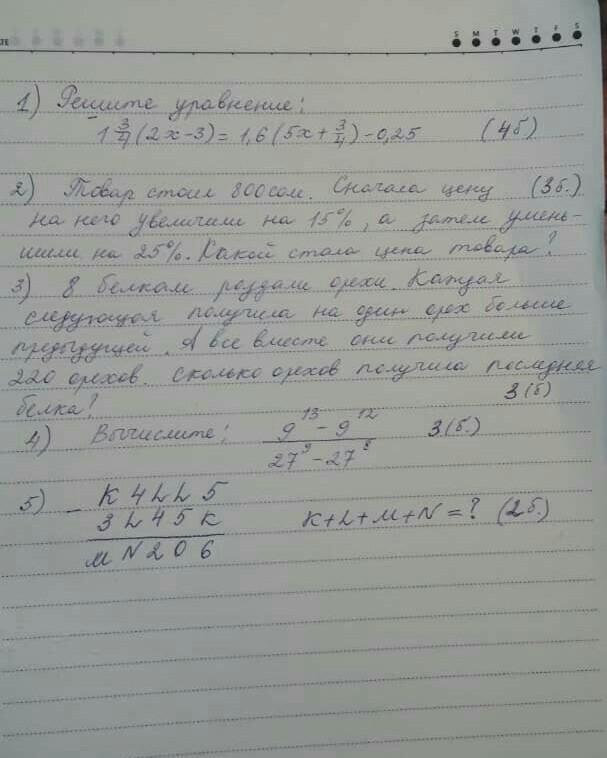 S M T W T F S
1) Решите уравнение:
1 3/4 (2x-3) = 1,6(5x + 3/4) - 0,25 (4б)
2) Товар стоил 800сом. Сначала цену (3б.)
на него увеличили на 15%, а затем умень-
шили на 25%. Какой стала цена товара?
3) 8 белкам раздали орехи. Каждая
следующая получила на один орех больше
предыдущей. А все вместе они получили
220 орехов. Сколько орехов получила последняя
белка? 3(б)
4) Вычислите: (9^13 - 9^12)/(27^9 - 27^8) 3(б.)
5) - K4LL5
3L45K
MN206
K+L+M+N=? (2б.)